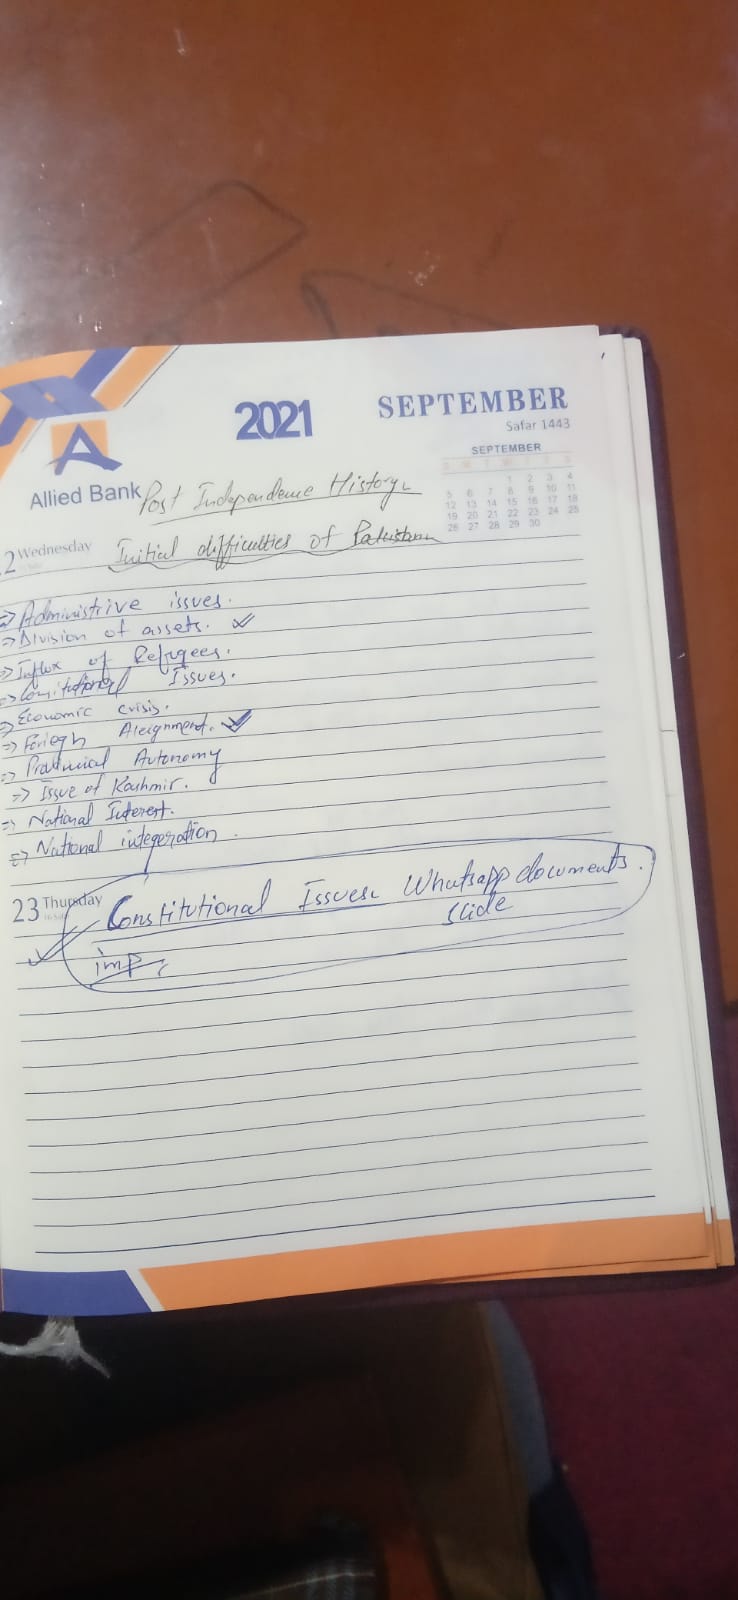 2021
SEPTEMBER
Safar 1443
SEPTEMBER
1 2 3 4
5 6 7 8 9 10 11
12 13 14 15 16 17 18
19 20 21 22 23 24 25
26 27 28 29 30
Allied Bank
Post Independence History
2 Wednesday
Initial difficulties of Pakistan
=> Administrive issues.
=> Division of assets. ✓
=> Influx of Refugees.
=> Issues.
=> Economic crisis.
=> Foriegn Aleignment. ✓
=> Provincial Autonomy
=> Issue of Kashmir.
=> National Interest.
=> National integeration.
23 Thursday
Constitutional Issues Whatsapp documents.
slide
imp